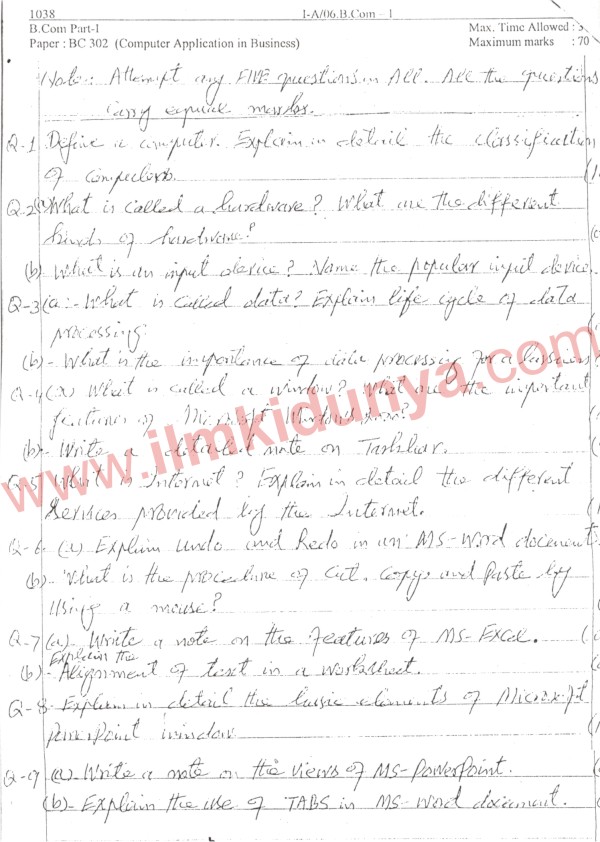 1038 I-A/06.B.Com – I
B.Com Part-I Max. Time Allowed : 3
Paper : BC 302 (Computer Application in Business) Maximum marks : 70
Note: Attempt any FIVE questions in All. All the questions
carry equal marks.
Q-1 Define a computer. Explain in detail the classification
of computers.
Q-2(a) What is called a hardware? What are the different
kinds of hardware?
(b) What is an input device? Name the popular input device.
Q-3(a:- What is called data? Explain life cycle of data
processing.
(b)- What is the importance of data processing for a business
Q-4(a) What is called a window? What are the important
features of Microsoft Windows
(b)- Write a detailed note on Taskbar.
Q-5 What is Internet? Explain in detail the different
Services provided by the Internet.
Q-6 (a) Explain Undo and Redo in an MS-Word document.
(b)- What is the procedure of Cut, Copy and Paste by
Using a mouse?
Q-7 (a)- Write a note on the features of MS-Excel.
Explain the
(b)- Alignment of text in a worksheet.
Q-8- Explain in detail the basic elements of Microsoft
PowerPoint window
Q-9 (a)- Write a note on the views of MS-PowerPoint.
(b)- Explain the use of TABS in MS-Word document.
www.ilmkidunya.com